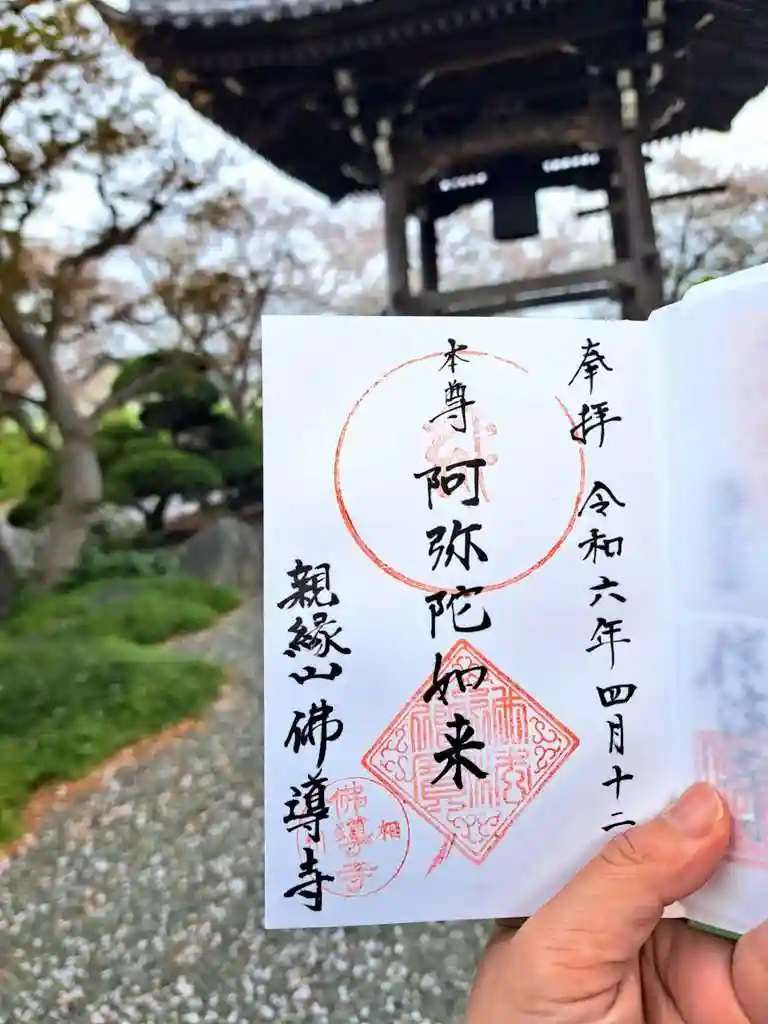 奉拝 令和六年四月十二
本尊 阿弥陀如来
親縁山 佛導寺
佛導寺
相